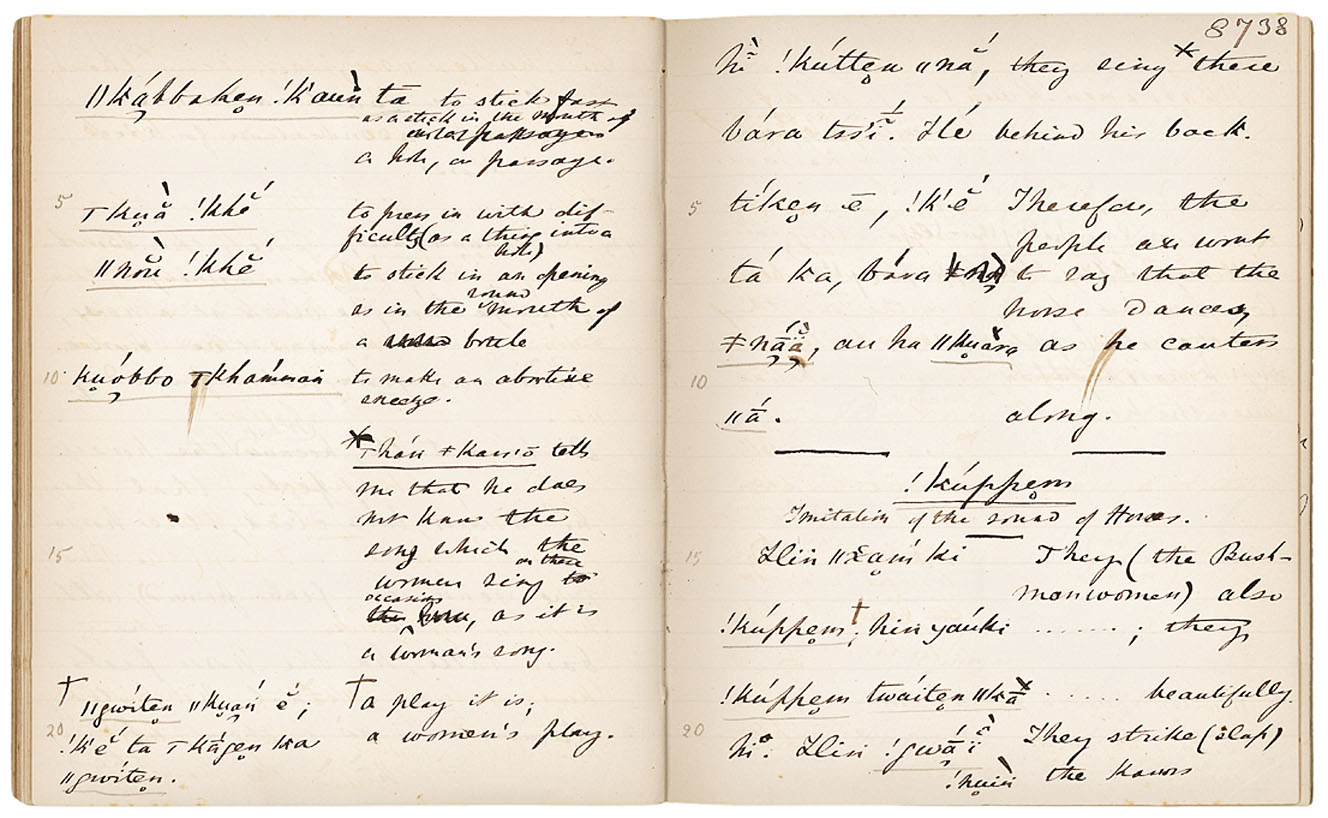 ǁkábbaken !kauṅ ta to stick fast
as a stick in the mouth of
a hole, or passage.
5 ꞇkuằ !khĕ́ to press in with dif-
ficulty (as a thing into a
hole)
ǁnŏù !khĕ́ to stick in an opening
as in the round mouth of
a bottle
10 kuóbbo ꞇkhámmaṅ to make an abortive
sneeze.
* ꞇháṅ ǂkassʼō tells
me that he does
not know the
15 song which the
women sing on these
occasions, as it is
a woman's song.
† ǁgwíten ǁkuaṅ é̄; † a play it is;
20 !kĕ́ ta ꞇkā́gen ka a women's play.
ǁgwíten.
8738
hĭ̀ !kútten ǁnā́, they sing * these
bára tssʼĭ́. Hé behind his back.
5 tíken ē, !kʼĕ́ Therefore, the
people are wont
tá ka, bára to say that the
horse dances,
ǂnā́ĭ̀, au ha ǁkuàra as he canters
10 ǁā́. along.
!kúppem
Imitation of the sound of Horses.
15 Hiṅ ǁχaṃ́ ki They (the Bush-
manwomen) also
!kúppem †; hiṅ yaúki ........ ; they
!kúppem twáiten ǁkā́ ...... beautifully.
20 hĭ. Hiṅ !gwā́ĭ̀ They strike (slap)
!nuiṅ̀ the Kaross